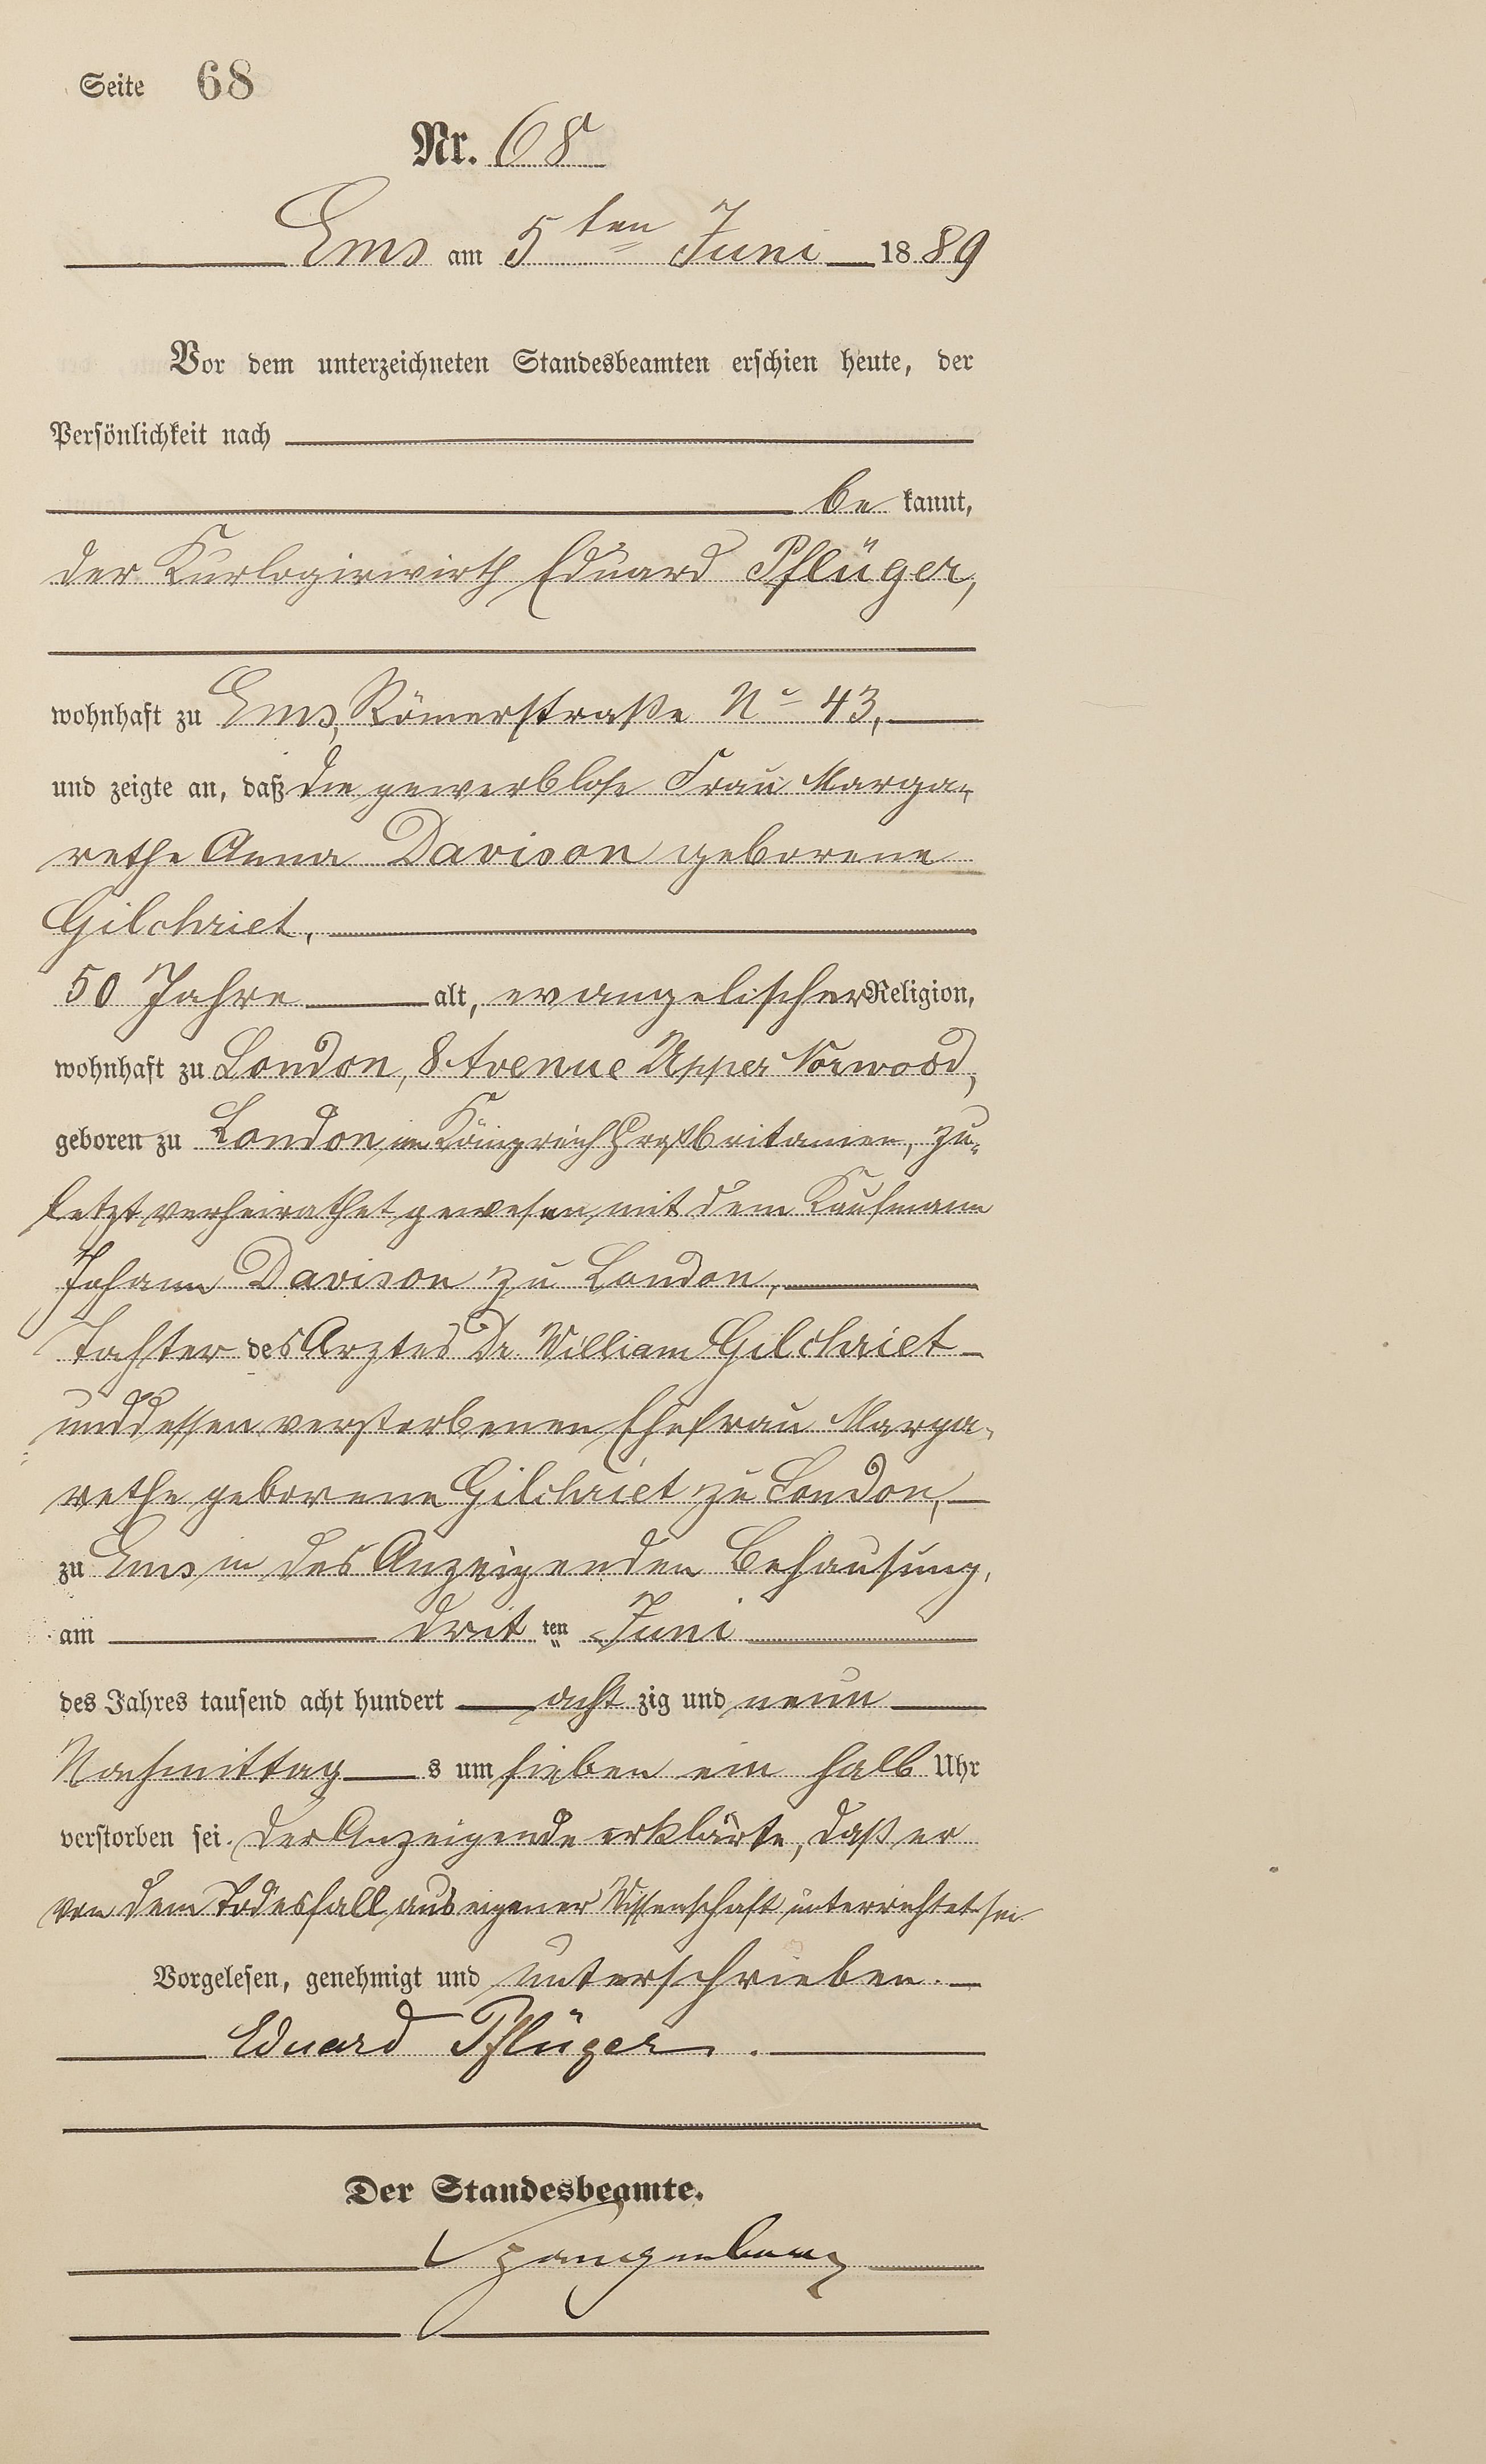 Seite 68
Nr. 68
Ems am 5ten Juni 1889
Vor dem unterzeichneten Standesbeamten erschien heute, der
Persönlichkeit nach
be kannt,
der Kurlogirwirth Eduard Pflüger,
wohnhaft zu Ems, Römerstraße No 43,
und zeigte an, daß die gewerblose Frau Marga-
rethe Anna Davison geborene
Gilchrist,
50 Jahre alt, evangelischer Religion,
wohnhaft zu London, 8 Avenue Upper Norwood,
geboren zu London im Königreich Großbritanien, zu-
letzt verheirathet gewesen mit dem Kaufmann
Johann Davison zu London,
Tochter des Arztes Dr. William Gilchrist
und dessen verstorbenen Ehefrau Marga-
rethe geborene Gilchrist zu London,
zu Ems in des Anzeigenden Behausung,
am drit ten Juni
des Jahres tausend acht hundert acht zig und neun
Nachmittag s um sieben ein halb Uhr
verstorben sei. Der Anzeigende erklärte, daß er
von dem Todesfall aus eigener Wissenschaft unterrichtet sei.
Vorgelesen, genehmigt und unterschrieben.
Eduard Pflüger.
Der Standesbeamte.